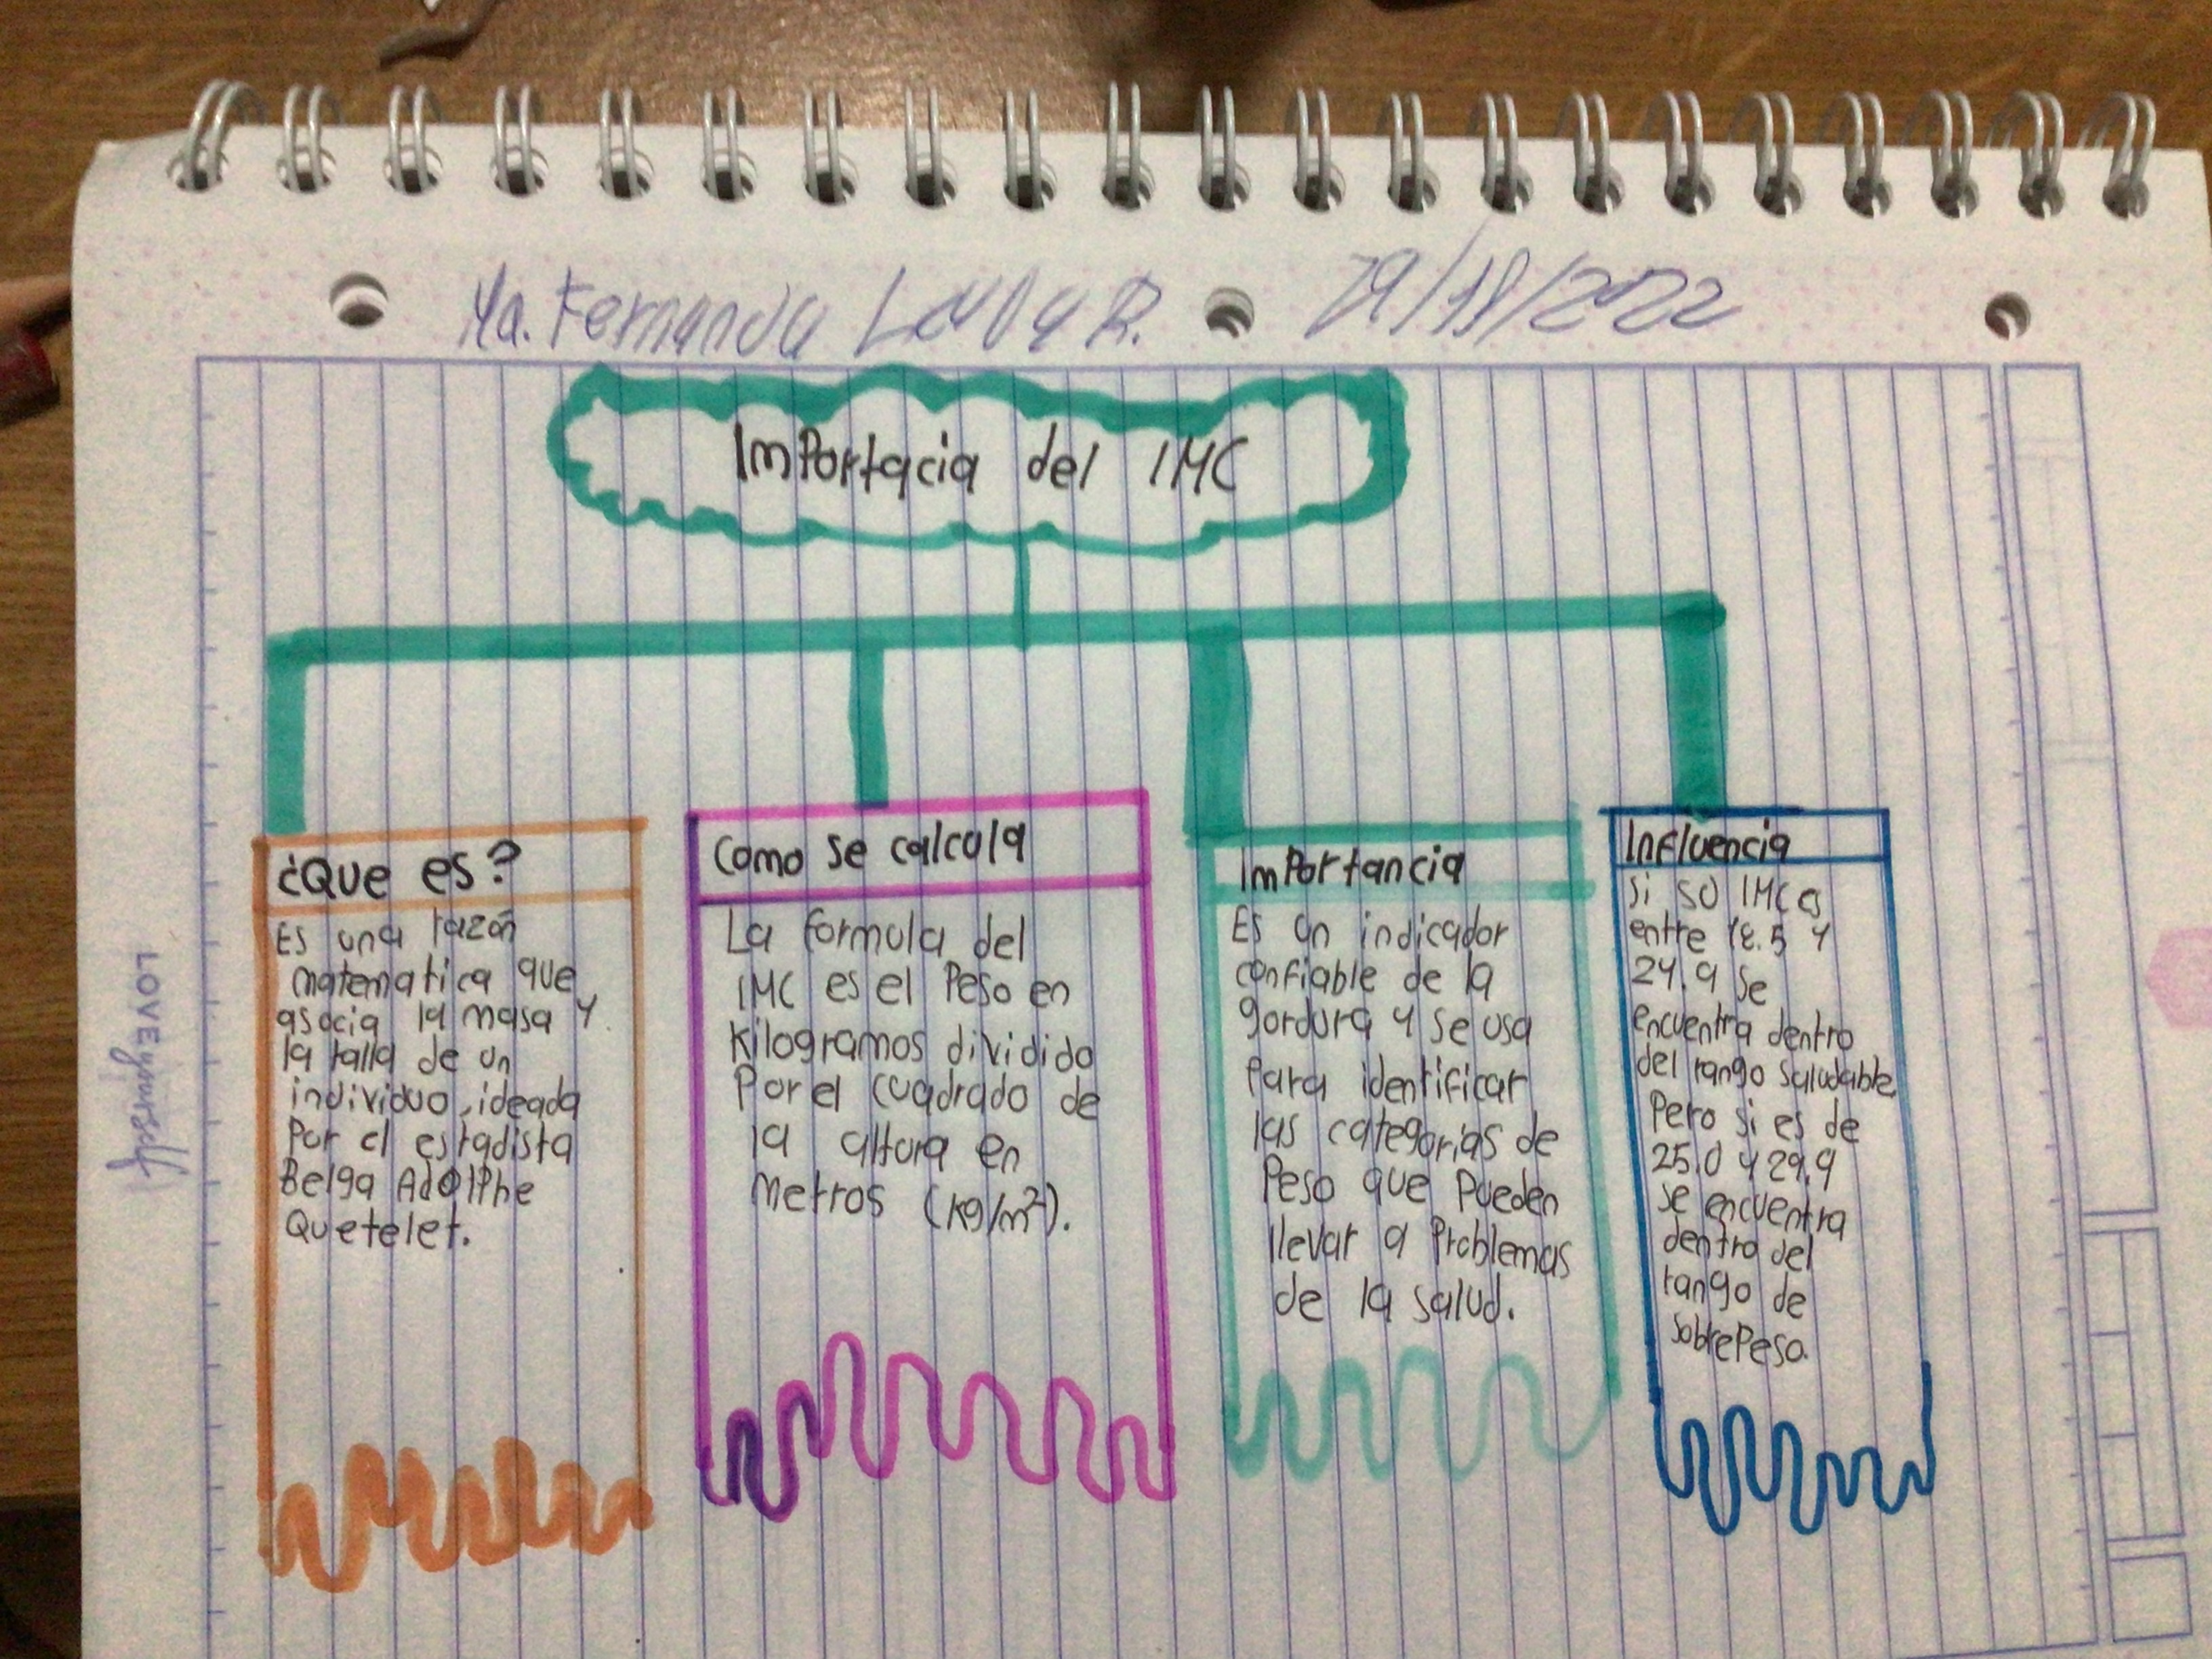 Ma. Fernanda R.
Importacia del IMC
¿Que es?
Es una razón
matematica que
asocia la masa y
la talla de un
individuo, ideada
Por el estadista
Belga Adolphe
Quetelet.
Como se calcula
La formula del
IMC es el Peso en
Kilogramos dividido
Por el cuadrado de
la altura en
Metros (kg/m²).
Importancia
Es un indicador
confiable de la
gordura y se usa
Para identificar
las categorias de
Peso que pueden
llevar a Problemas
de la salud.
Influencia
Si su IMC es
entre 18.5 y
24.9 se
encuentra dentro
del rango saludable
Pero si es de
25.0 y 29.9
se encuentra
dentro del
rango de
sobrepeso.
LOVEyourself